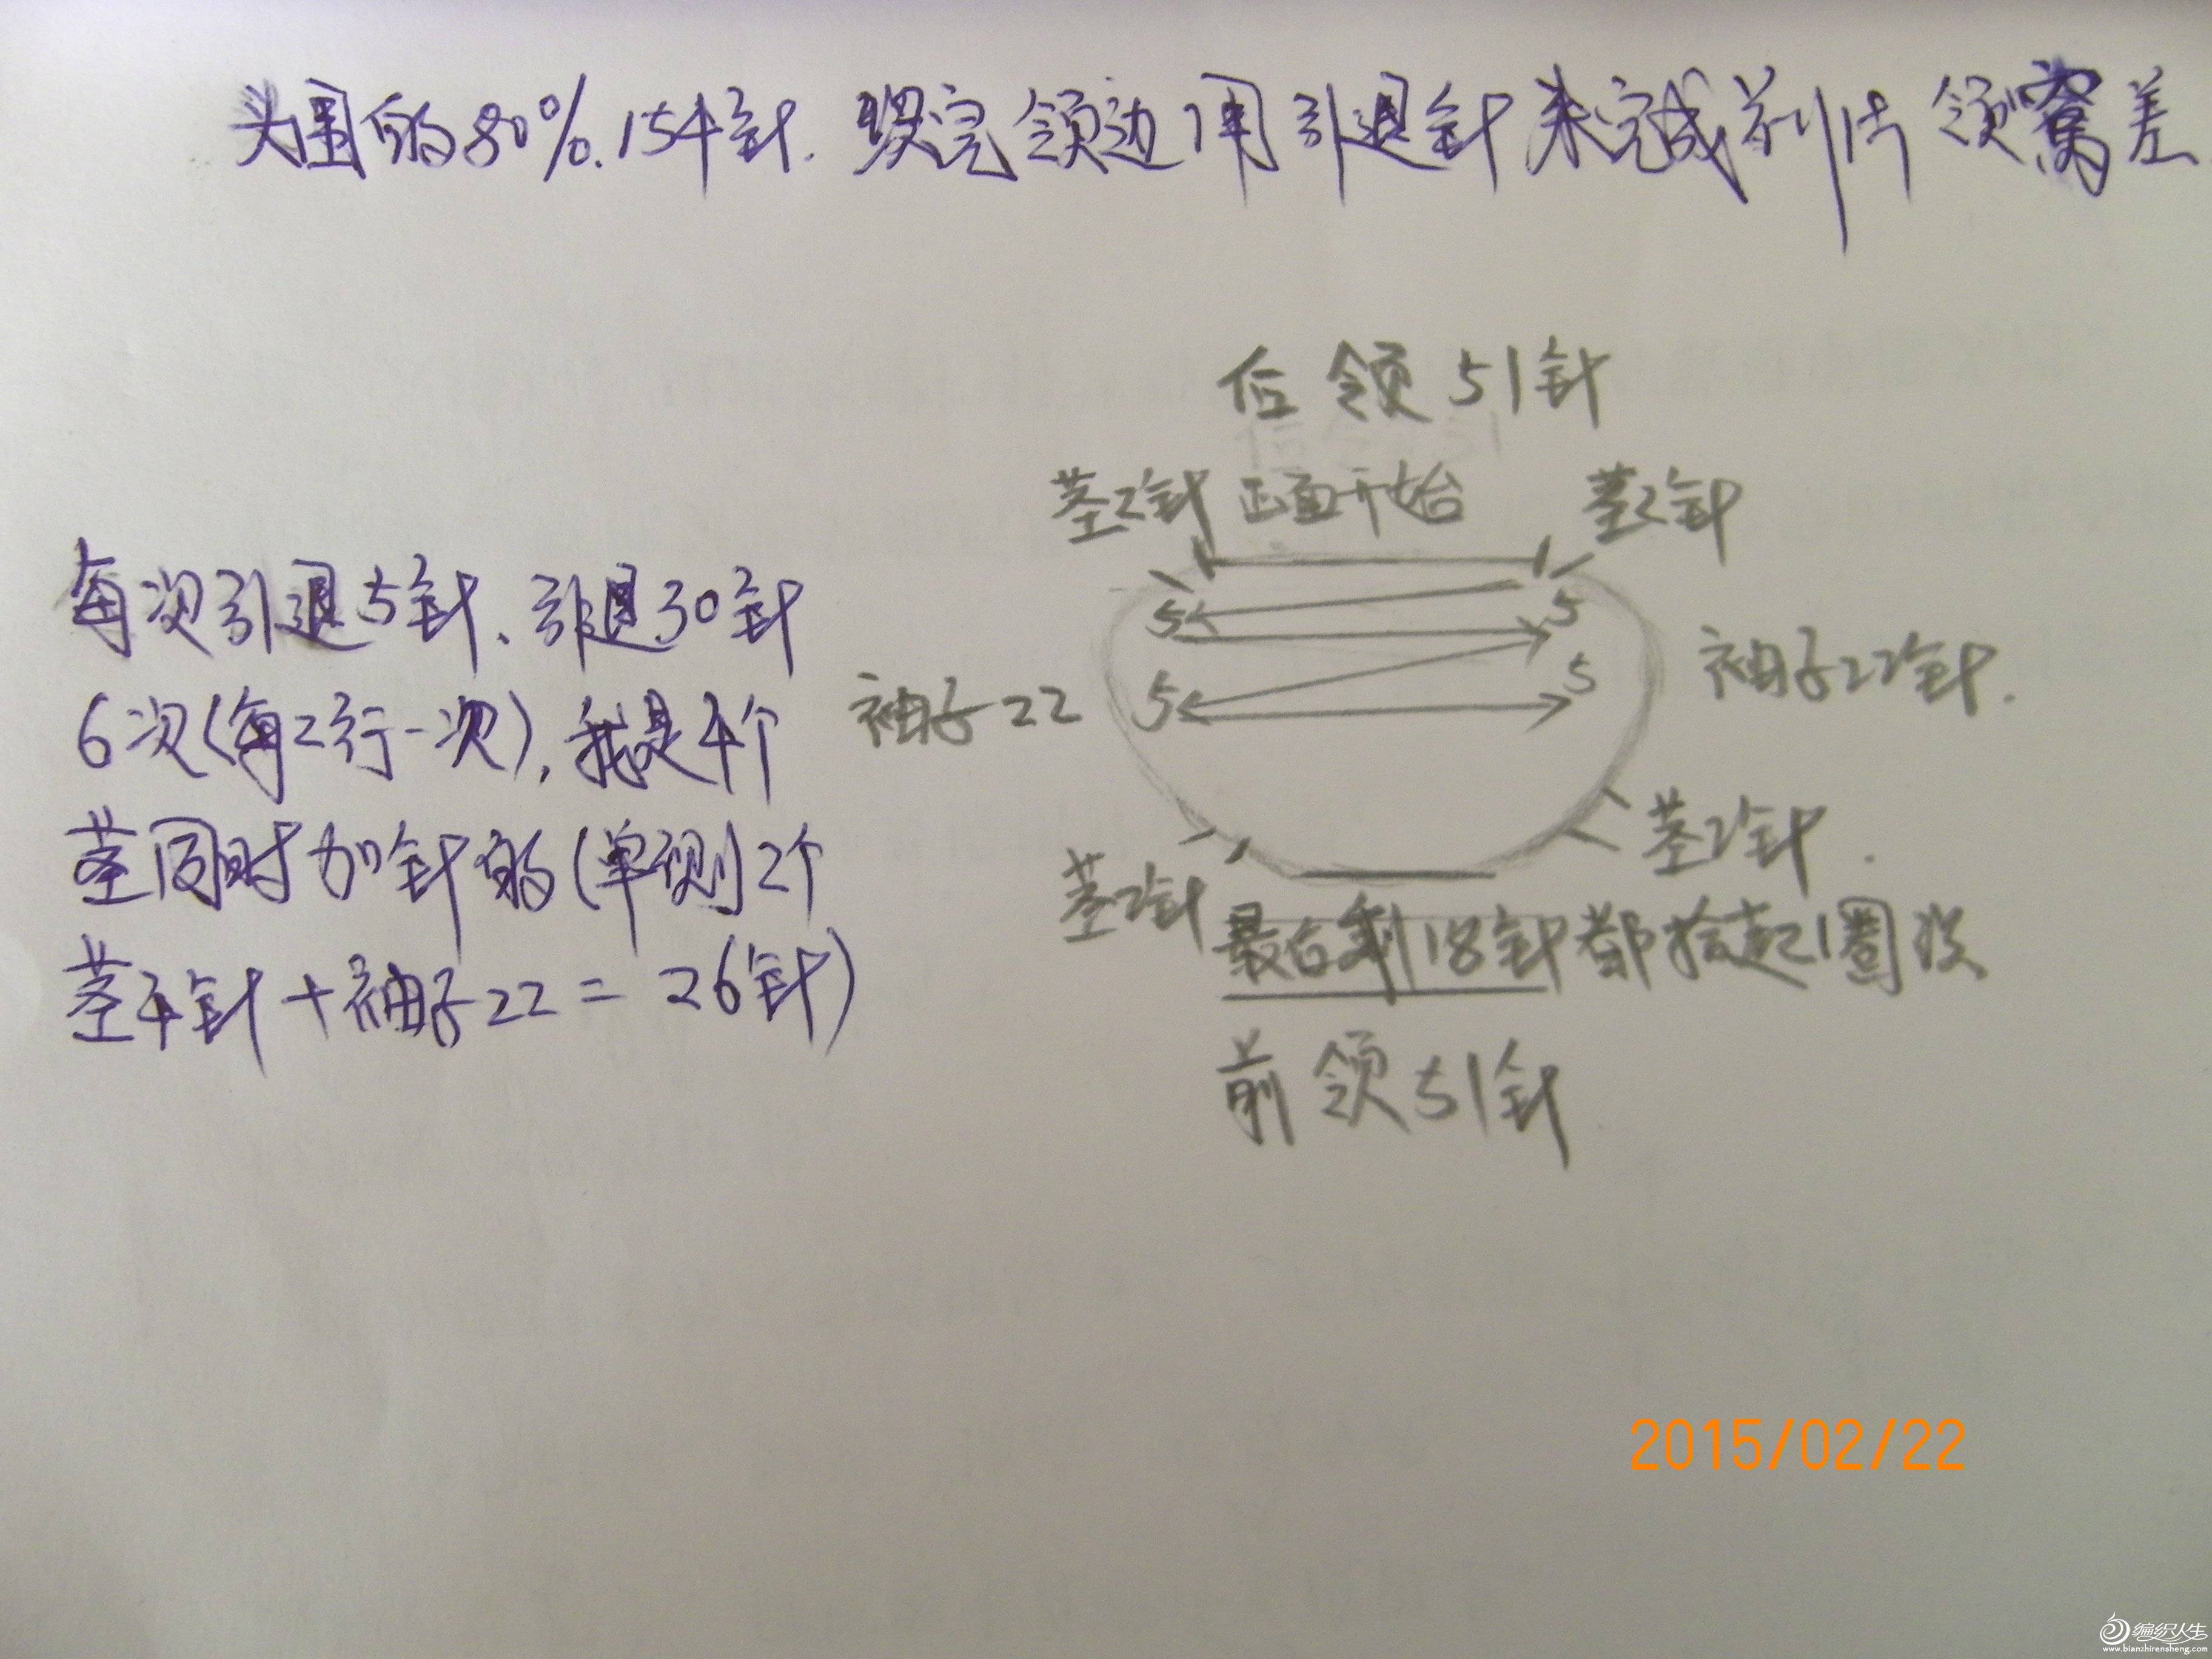 头围的80%.154针. 织完领边用引退针来完成前后领窝差
后领51针
茎2针 正面开始 茎2针
每次引退5针、引退30针
6次(每2行一次),我是4个
茎同时加针的(单侧2个
茎4针+袖子22=26针)
5 5
5 5
袖子22
袖子22针.
茎2针
茎2针.
最后剩18针都拾起1圈织
前领51针
2015/02/22
编织人生
www.bianzhirensheng.com